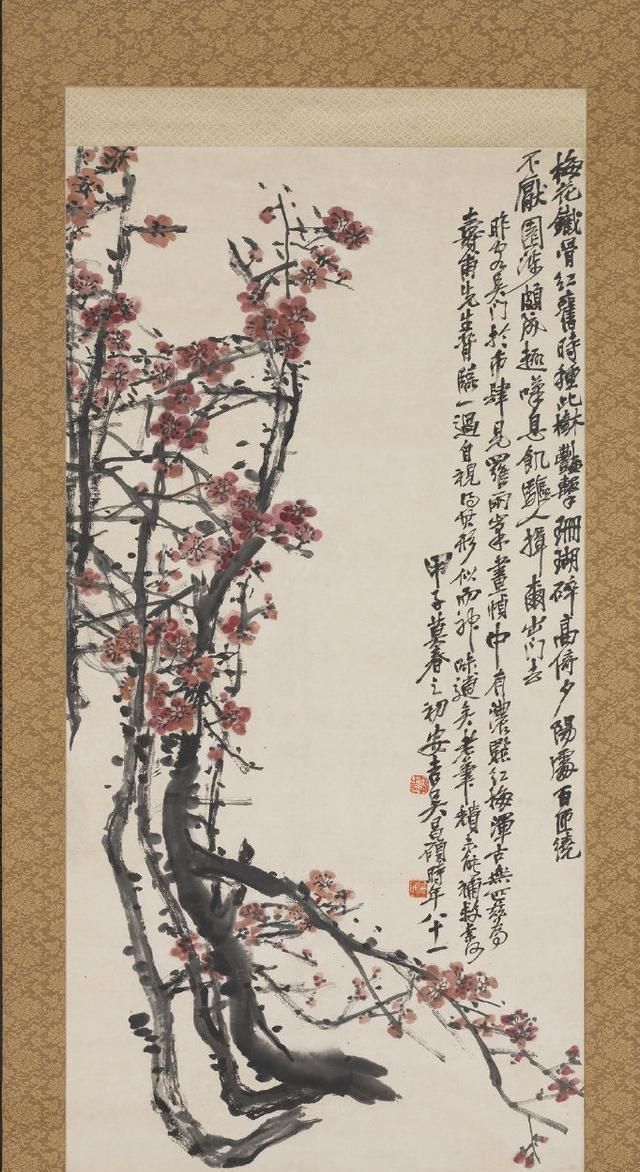 梅花鐵骨紅舊時種此樹豔擊珊瑚碎高倚夕陽處百匝繞
不厭園涉頗成趣嘆息飢驅人揖爾出門去
昨客吳門於市肆見羅兩峯畫幀中有濃豔紅梅渾古無匹茲為
壽甫先生背臨一過自視得其形似而神味遠矣老筆頹未能補救奈何
甲子莫春之初安吉吳昌碩時年八十一